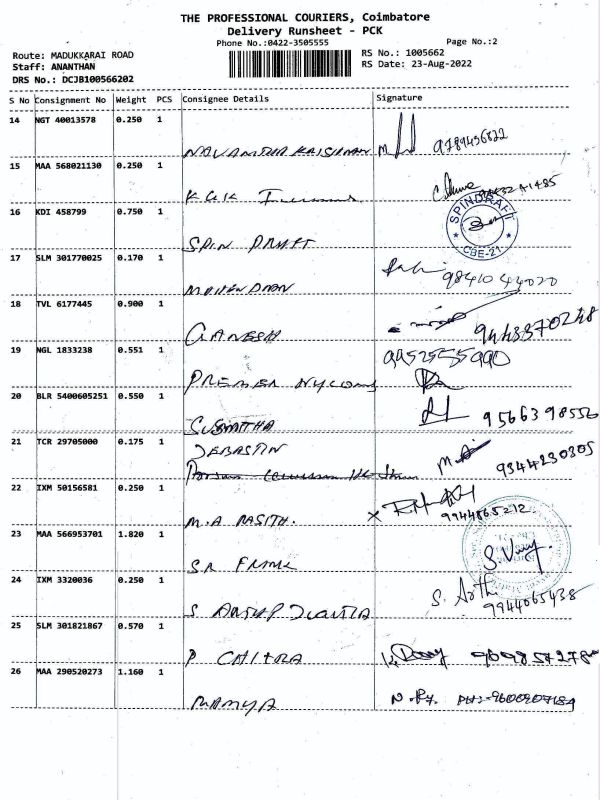 THE PROFESSIONAL COURIERS, Coimbatore
Delivery Runsheet - PCK
Phone No.:0422-3505555 Page No.:2
Route: MADUKKARAI ROAD RS No.: 1005662
Staff: ANANTHAN RS Date: 23-Aug-2022
DRS No.: DCJB100566202
S No Consignment No Weight PCS Consignee Details Signature
14 NGT 40013578 0.250 1
9789456822
15 MAA 568021130 0.250 1
K G K
16 KDI 458799 0.750 1
SPINDRAFT
CBE-21
SPIN DRAFT
17 SLM 301770025 0.170 1
98410 44020
18 TVL 6177445 0.900 1
GANESH 9443370248
19 NGL 1833238 0.551 1
9952555990
PREMIER
20 BLR 5400605251 0.550 1
SUSMITHA 9566398556
21 TCR 29705000 0.175 1
JEBASTIN 9344230305
22 IXM 50156581 0.250 1
M.A RASITH. 9944865212
23 MAA 566953701 1.820 1
S.Vijy.
SR FRAME
24 IXM 3320036 0.250 1
S. Arthi
9944065438
S
25 SLM 301821867 0.570 1
P CHITRA
26 MAA 290520273 1.160 1
RAMYA PH:-9600907184